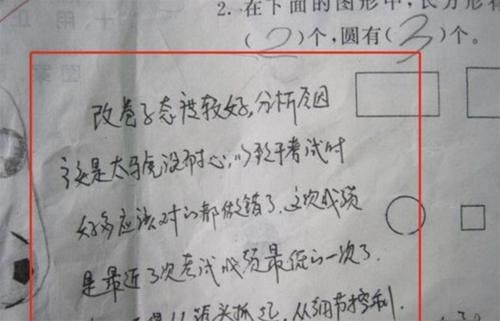 2. 在下面的图形中，长方形有
（2）个，圆有（3）个。
改卷子态度较好，分析原因
主要是太马虎没耐心，以致于考试时
好多应该对的都做错了。这次成绩
是最近了次考试成绩最低的一次了.
从细节控制.